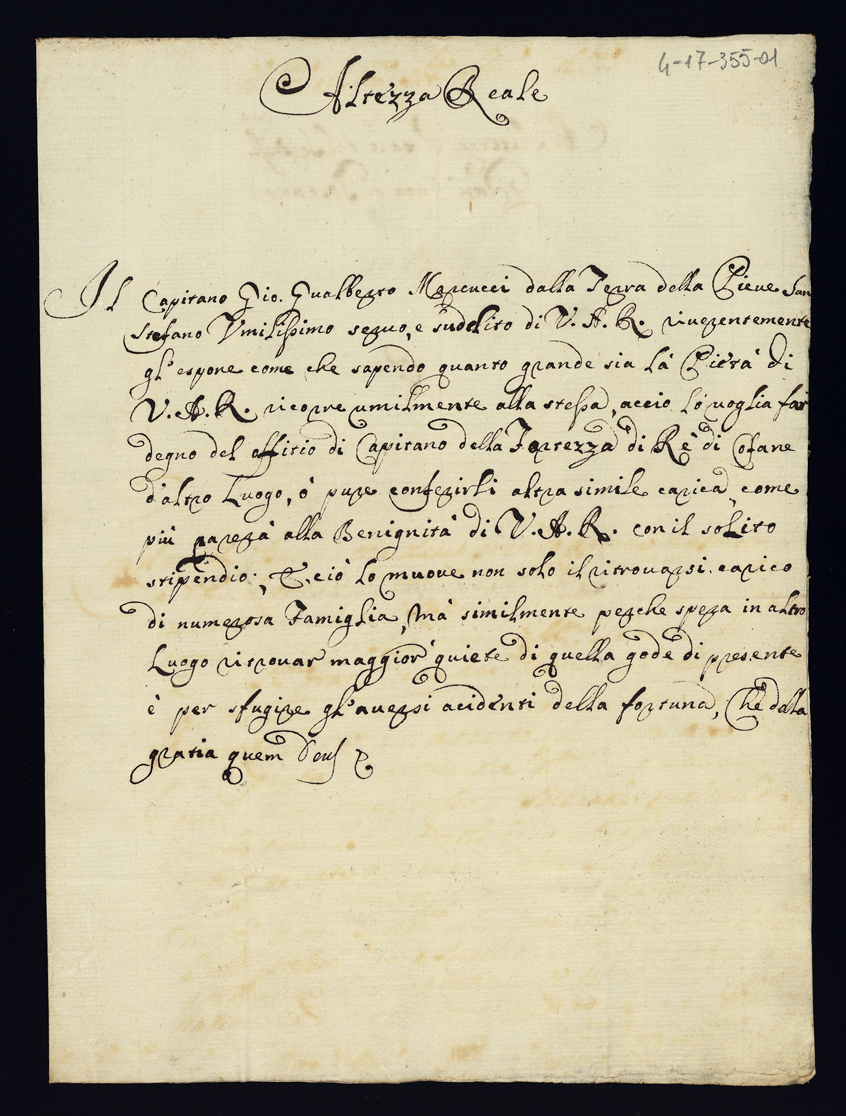 4-17-355-01
Altezza Reale
Il Capitano Gio. Gualberto Marcucci dalla Terra della Pieve San
Stefano Umilissimo seruo, e suddito di V. A. R. riuerentemente
gl'espone come che sapendo quanto grande sia là Pietà di
V. A. R. ricorre umilmente alla stessa, acciò lò voglia far
degno del offitio di Capitano della Fortezza di Rè di Cofane
d'altro Luogo, ò pure conferirli altra simile carica, come
più parerà alla Benignità di V. A. R. con il solito
stipendio; E ciò lo muoue non solo il ritrouarsi carico
di numerosa Famiglia, Mà similmente perche spera in altro
Luogo ritrouar maggior quiete di quella gode di presente
è per sfugire gl'auersi acidenti della fortuna, Chè dalla
gratia quem Deus